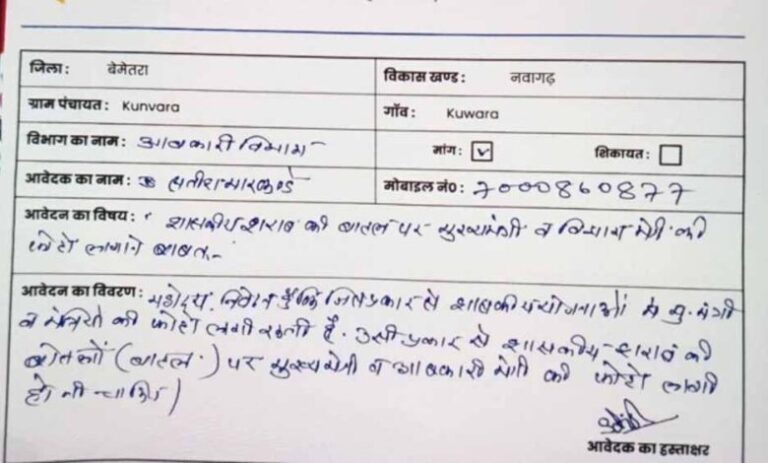 जिला: बेमेतरा
विकास खण्ड: नवागढ़
ग्राम पंचायत: Kunvara
गाँव: Kuwara
विभाग का नाम: आबकारी विभाग
मांग: ☑ शिकायत: ☐
आवेदक का नाम: सतीश मारकण्डे
मोबाइल नं०: 7000860877
आवेदन का विषय: शासकीय शराब की बाटल पर मुख्यमंत्री व विभाग मंत्री की
फोटो लगाने बाबत.-
आवेदन का विवरण: महोदय, निवेदन है कि जिस प्रकार से शासकीय योजनाओं में मु.मंत्री
व मंत्रियों की फोटो लगी रहती है. उसी प्रकार से शासकीय शराब की
बोतलों (बाटल.) पर मुख्यमंत्री व आबकारी मंत्री की फोटो लगी
होनी चाहिए/
आवेदक का हस्ताक्षर